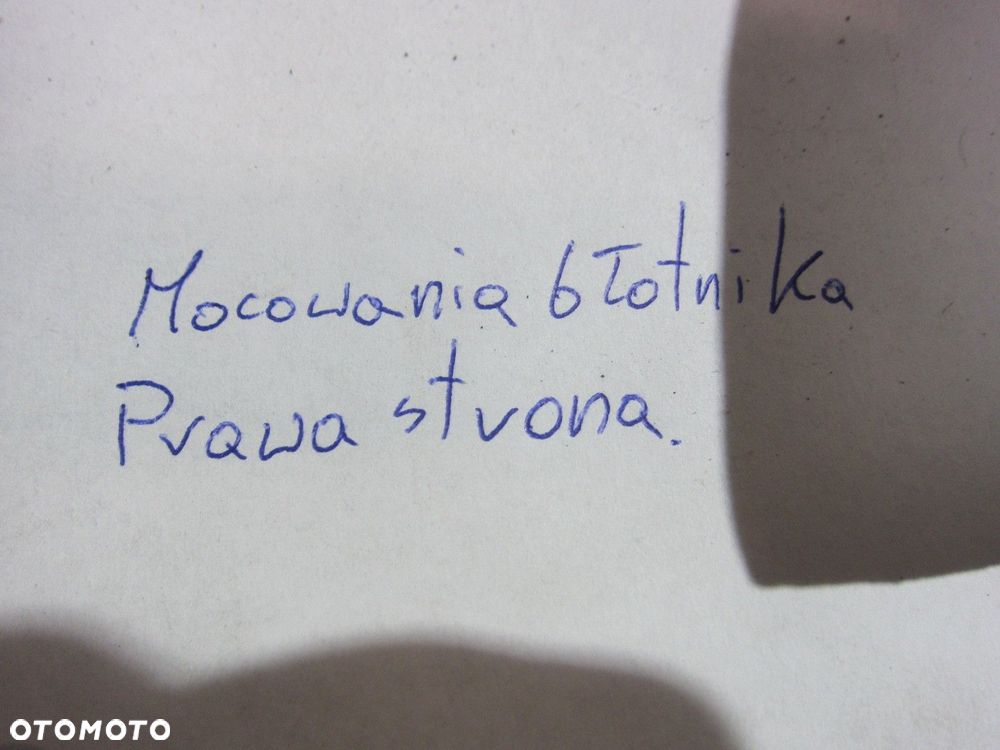 Mocowania błotnika
Prawa strona.
OTOMOTO